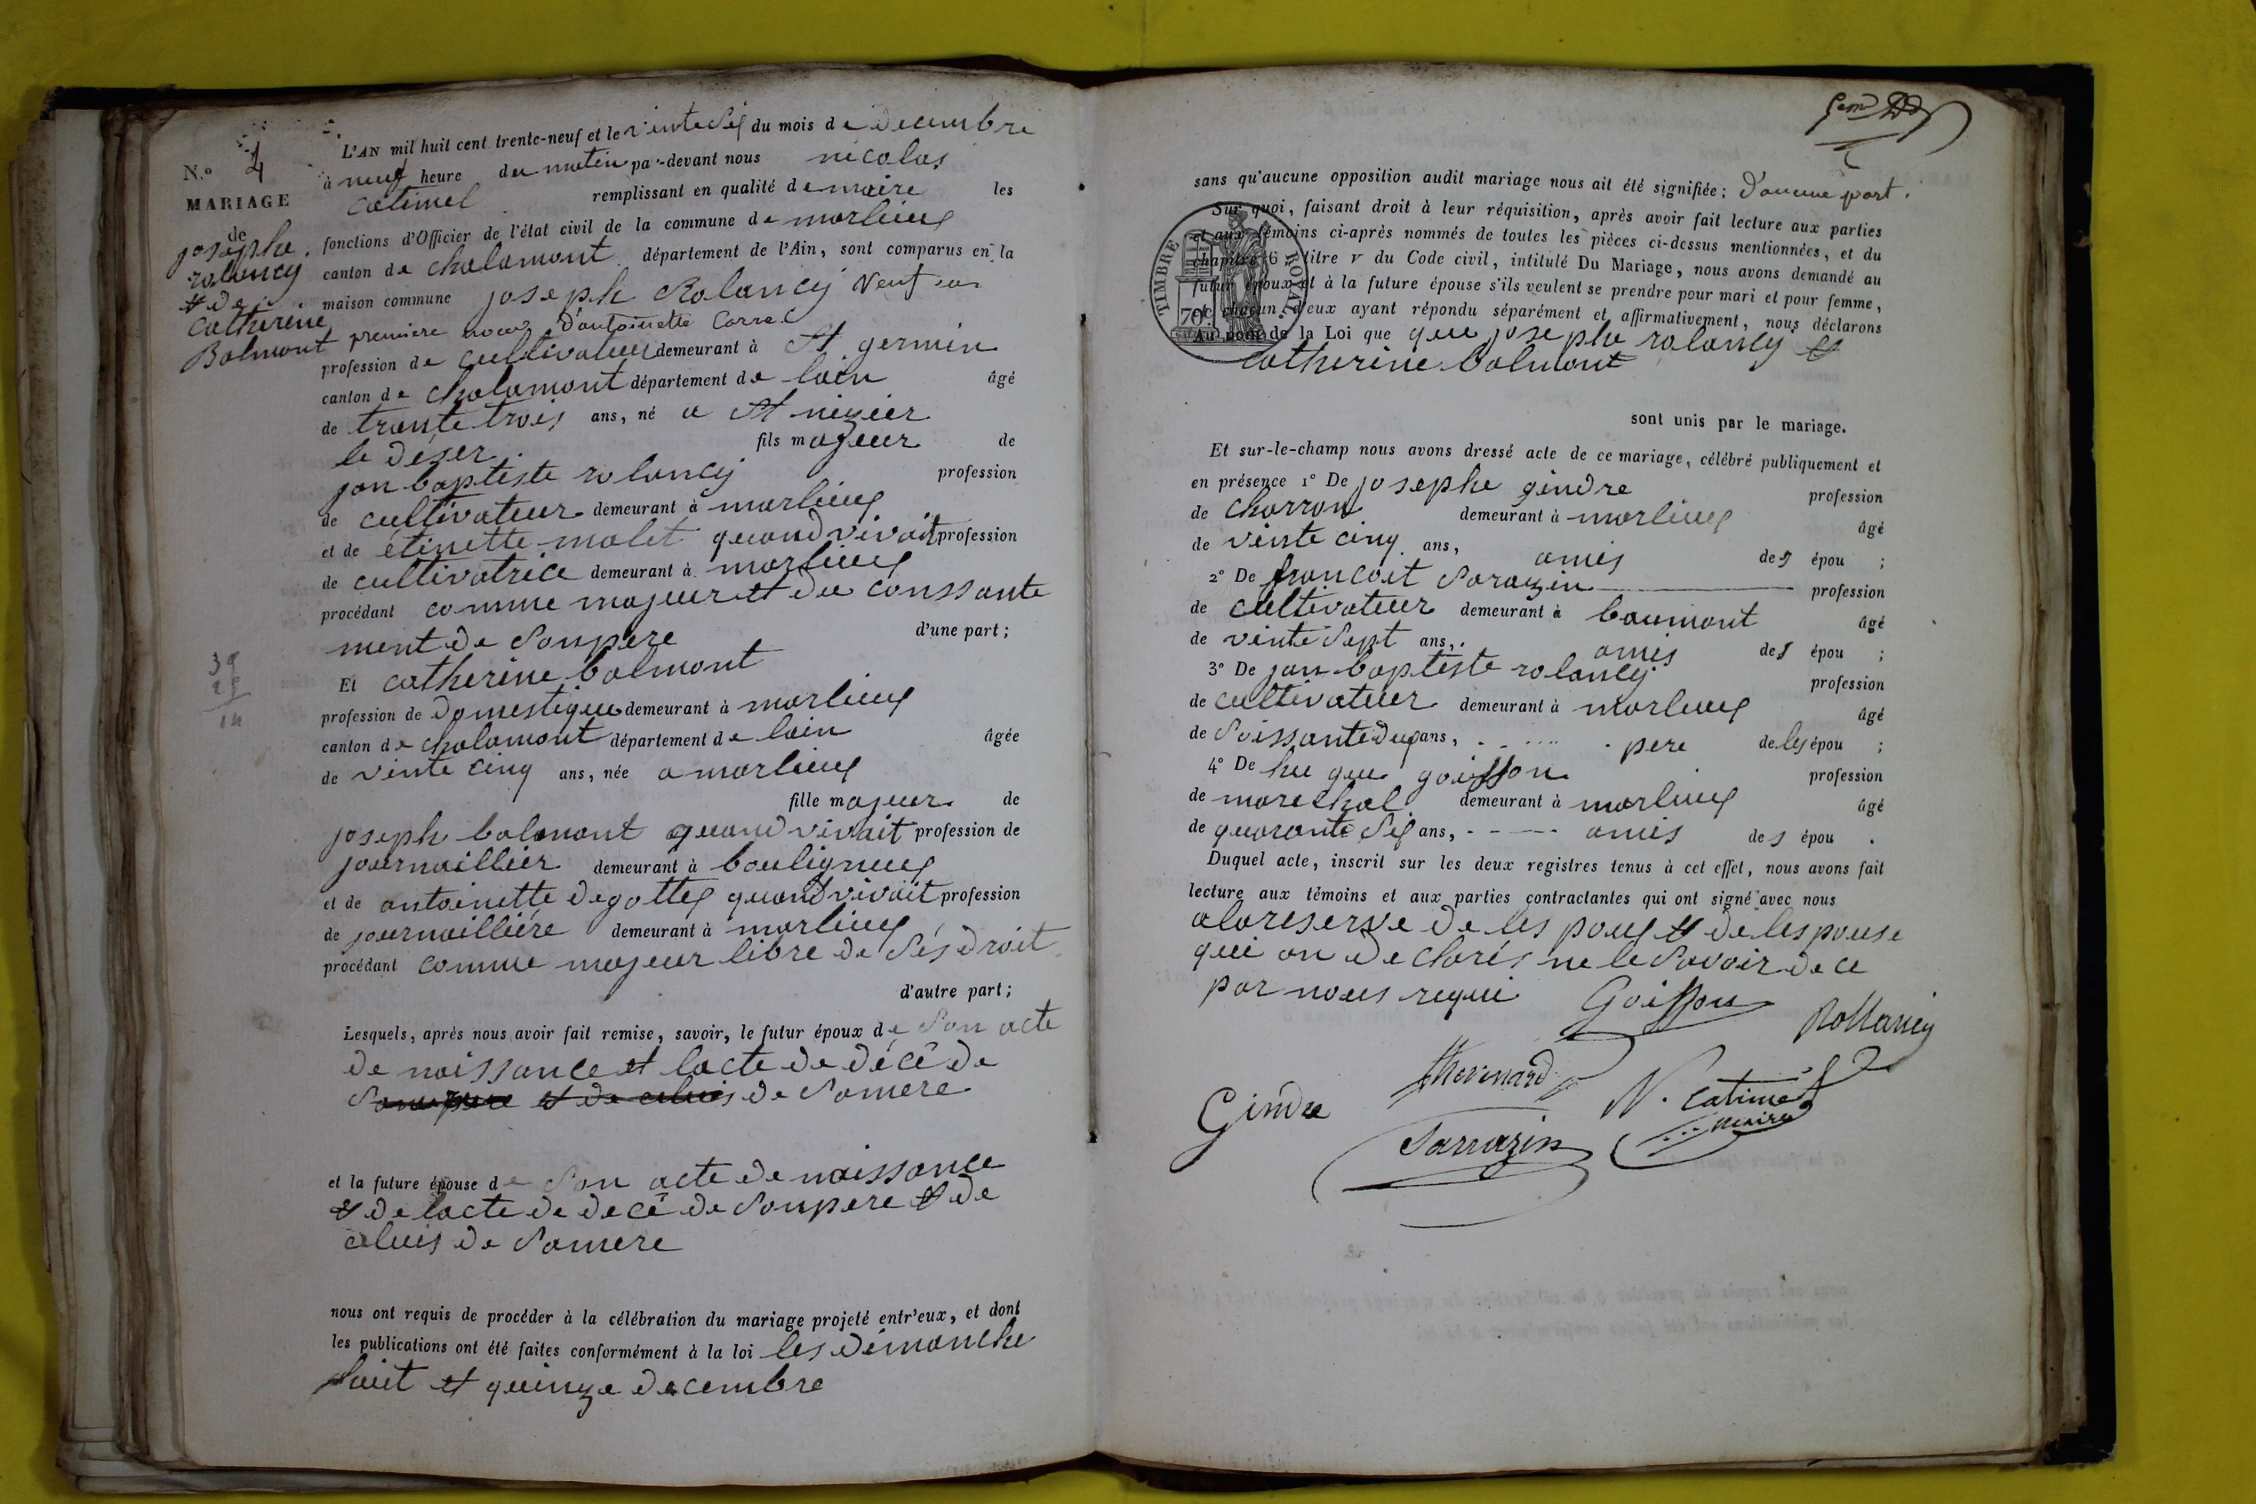 N.o 4
MARIAGE
de
josephe
rolancy
et de
catherine
Balmont
L'AN mil huit cent trente-neuf et le vinte six du mois de decembre
à neuf heure du matin par-devant nous nicolas
catimel remplissant en qualité de maire les
fonctions d'Officier de l'état civil de la commune de marlieux
canton de chalamont département de l'Ain, sont comparus en la
maison commune joseph Rolancy veuf en
premiere noces d'antoinette Carrel
profession de cultivateur demeurant à st germin
canton de chalamont département de lain âgé
de trante trois ans, né a st nizier
le déser fils majeur de
jan baptiste rolancy profession
de cultivateur demeurant à marlieux
et de etinette malet quand vivait profession
de cultivatrice demeurant à marlieux
procédant comme majeur et du conssante
ment de son pere d'une part;
Et catherine balmont
profession de domestique demeurant à marlieux
canton de chalamont département de lain âgée
de vinte cinq ans, née a marlieux
fille majeur de
joseph balmont quand vivait profession de
journaillier demeurant à bouligneux
et de antoinette degottex quand vivait profession
de journailliére demeurant à marlieux
procédant comme majeur libre de sés droit
d'autre part;
Lesquels, après nous avoir fait remise, savoir, le futur époux de son acte
de naissance et lacte de décê de
son pere et de celuis de sa mere
et la future épouse de son acte de naissance
et de lacte de decê de son pere et de
celuis de sa mere
nous ont requis de procéder à la célébration du mariage projeté entr'eux, et dont
les publications ont été faites conformément à la loi les démanche
huit et quinze decembre
39
14
sans qu'aucune opposition audit mariage nous ait été signifiée; d'aucune part.
Sur quoi, faisant droit à leur réquisition, après avoir fait lecture aux parties
et aux témoins ci-après nommés de toutes les pièces ci-dessus mentionnées, et du
chapitre 6 titre v du Code civil, intitulé Du Mariage, nous avons demandé au
futur époux et à la future épouse s'ils veulent se prendre pour mari et pour femme,
et chacun d'eux ayant répondu séparément et affirmativement, nous déclarons
Au nom de la Loi que que josephe rolancy et
catherine balmont
TIMBRE ROYAL
70c
sont unis par le mariage.
Et sur-le-champ nous avons dressé acte de ce mariage, célébré publiquement et
en présence 1° De josephe gindre profession
de charron demeurant à marlieux âgé
de vinte cinq ans, amis des épou ;
2° De francoit sarazin profession
de cultivateur demeurant à baumont âgé
de vinte sept ans, amis des épou ;
3° De jan baptiste rolancy profession
de cultivateur demeurant à marlieux âgé
de soissante dux ans, pere de lex épou ;
4° De hu que goiffon profession
de marechal demeurant à marlieux âgé
de quarante six ans, amis des épou .
Duquel acte, inscrit sur les deux registres tenus à cet effet, nous avons fait
lecture aux témoins et aux parties contractantes qui ont signé avec nous
a la reserve de les poux et de les pouse
qui on declarés ne le savoir de ce
par nous requi
Goiffon
Rollancy
Thevenard
N. catimel
maire
Gindre
Sarrazin